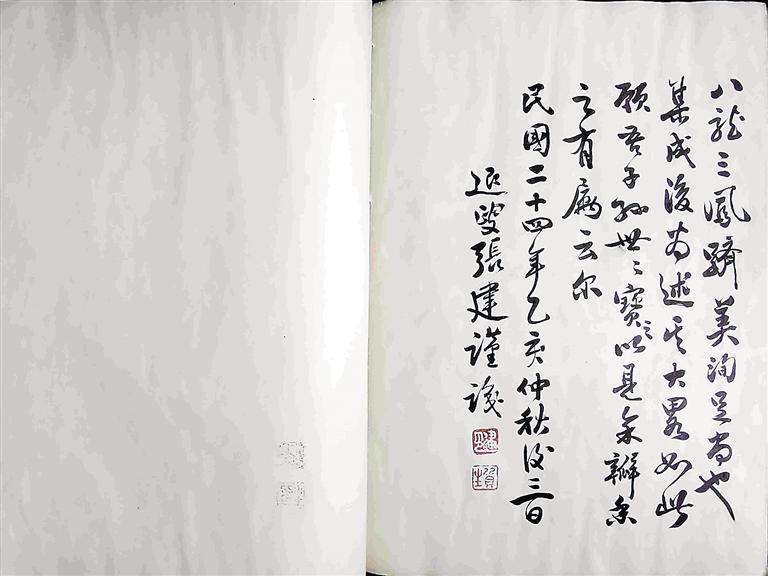 八龍三鳳躋美洵足尚也
集成後為述其大畧如此
願吾子孫世〻寶之以見余瓣香
之有屬云尔
民國二十四年乙亥仲秋後三日
叟張建謹識